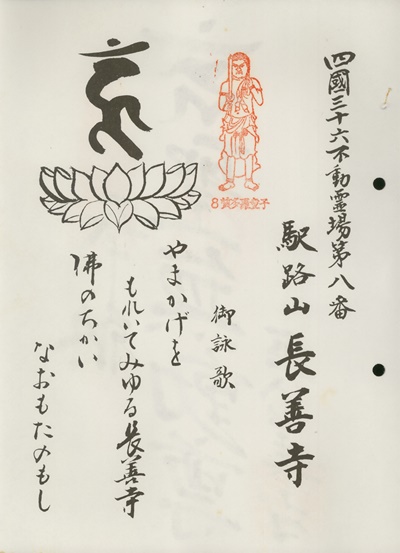 四國三十六不動霊場第八番
駅路山長善寺
8質多羅童子
御詠歌
やまかげを
もれいてみゆる長善寺
佛のちかい
なおもたのもし